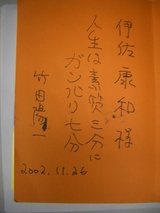 伊佐康和様
人生は素質三分に
ガンバリ七分
竹田陽一
2002.11.26